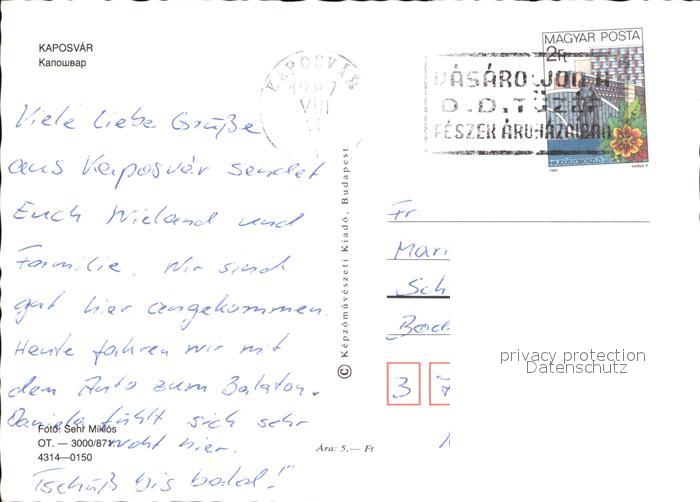 KAPOSVÁR
Капошвар
Viele liebe Grüße
aus Kaposvár sendet
Euch Wieland und
Familie. Wir sind
gut hier angekommen.
Heute fahren wir mit
dem Auto zum Balaton.
Daniela fühlt sich sehr
wohl hier.
Tschüß bis bald!"
Fotó: Sehr Miklós
OT. — 3000/871
4314—0150
Ára: 5,— Ft
© Képzőművészeti Kiadó, Budapest
KAPOSVÁR
1987
VIII
VÁSÁROLJON A
D.D.TÜZÉP
FÉSZEK ÁRUHÁZAIBAN
MAGYAR POSTA
2Ft
HAJDÚSZOBOSZLÓ
VARGA P.
Fr.
Mari
Sch
Bad
3 7
privacy protection
Datenschutz